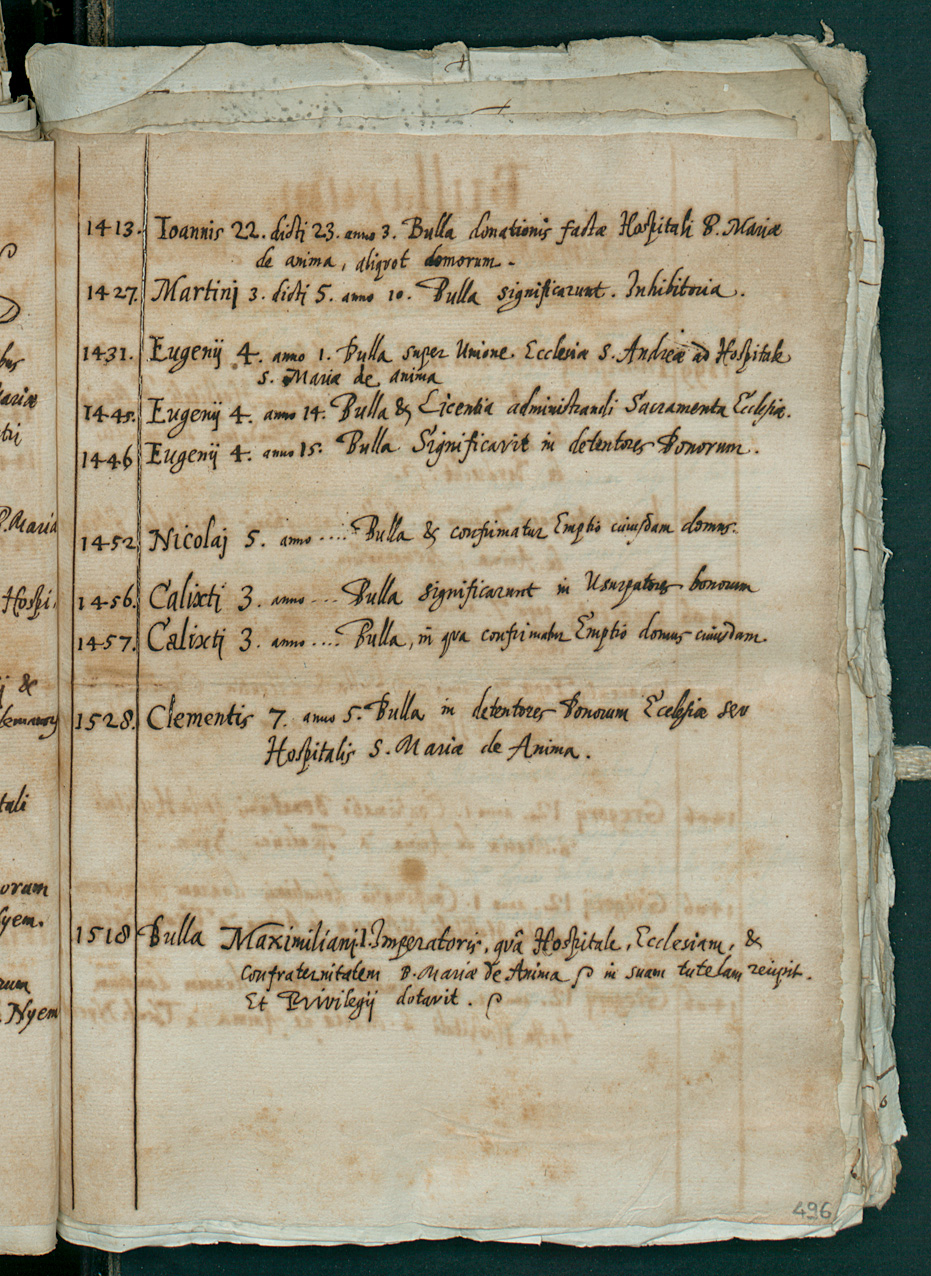 1413. Ioannis 22. dicti 23. anno 3. Bulla donationis factæ Hospitali B. Mariæ
de anima, aliquot domorum.
1427. Martinj 3. dicti 5. anno 10. Bulla significarunt. Inhibitoria.
1431. Eugenij 4. anno 1. Bulla super Unione Ecclesiæ S. Andreæ ad Hospitale
S. Mariæ de anima
1445. Eugenij 4. anno 14. Bulla & Licentia administrandi Sacramenta Ecclesiæ.
1446 Eugenij 4. anno 15. Bulla Significavit in detentores Bonorum.
1452 Nicolaj 5. anno .... Bulla & confirmatur Emptio cuiusdam domus.
1456. Calixtj 3. anno .... Bulla significarunt in Usurpatores bonorum
1457. Calixtj 3. anno .... Bulla, in qua confirmatur Emptio domus cuiusdam.
1528. Clementis 7. anno 5. Bulla in detentores Bonorum Ecclesiæ seu
Hospitalis S. Mariæ de Anima.
1518 Bulla Maximilianj I. Imperatoris, quâ Hospitale, Ecclesiam, &
Confraternitatem B. Mariæ de Anima in suam tutelam recipit.
Et Privilegij dotavit.
496